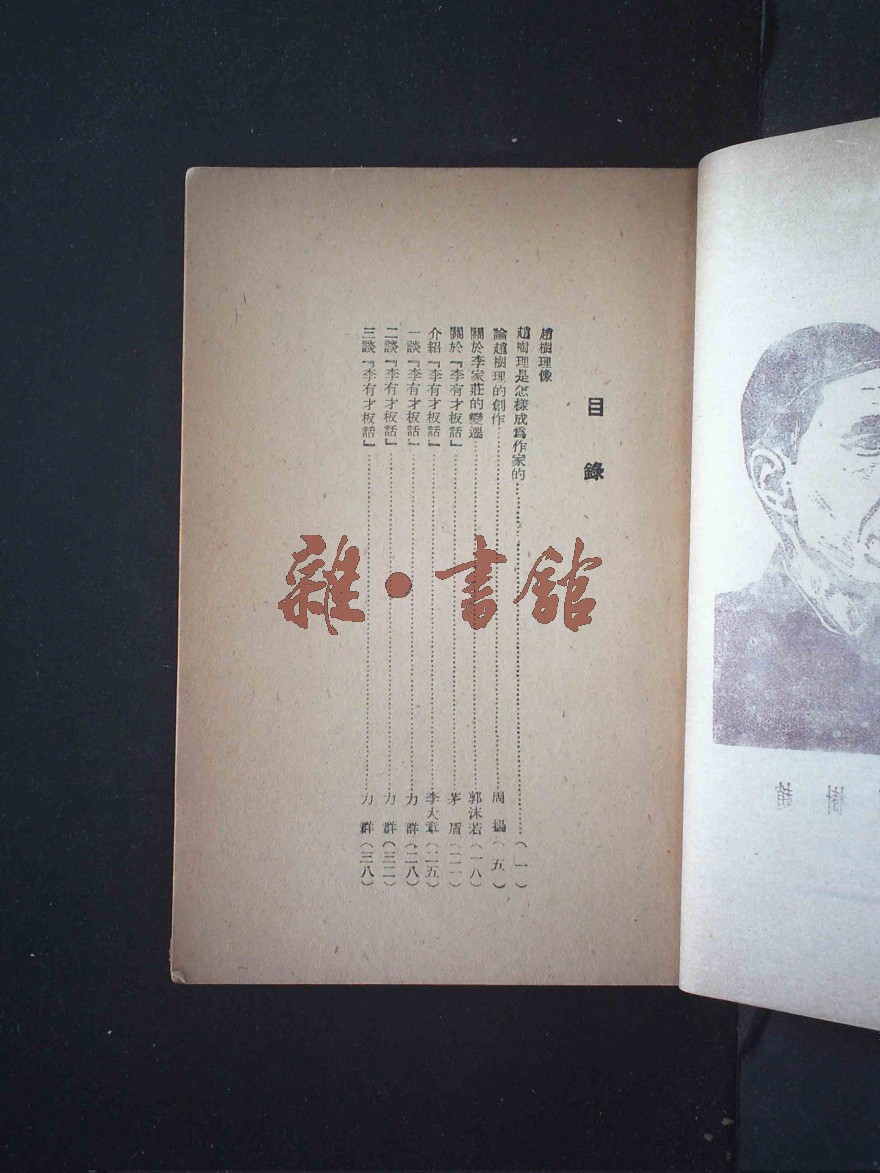 目錄
趙樹理像
趙樹理是怎樣成爲作家的（一）
論趙樹理的創作 周揚（五）
關於李家莊的變遷 郭沫若（一八）
關於『李有才板話』 茅盾（二一）
介紹『李有才板話』 李大章（二五）
一談『李有才板話』 力群（二八）
二談『李有才板話』 力群（三二）
三談『李有才板話』 力群（三八）
雜·書舘
趙樹